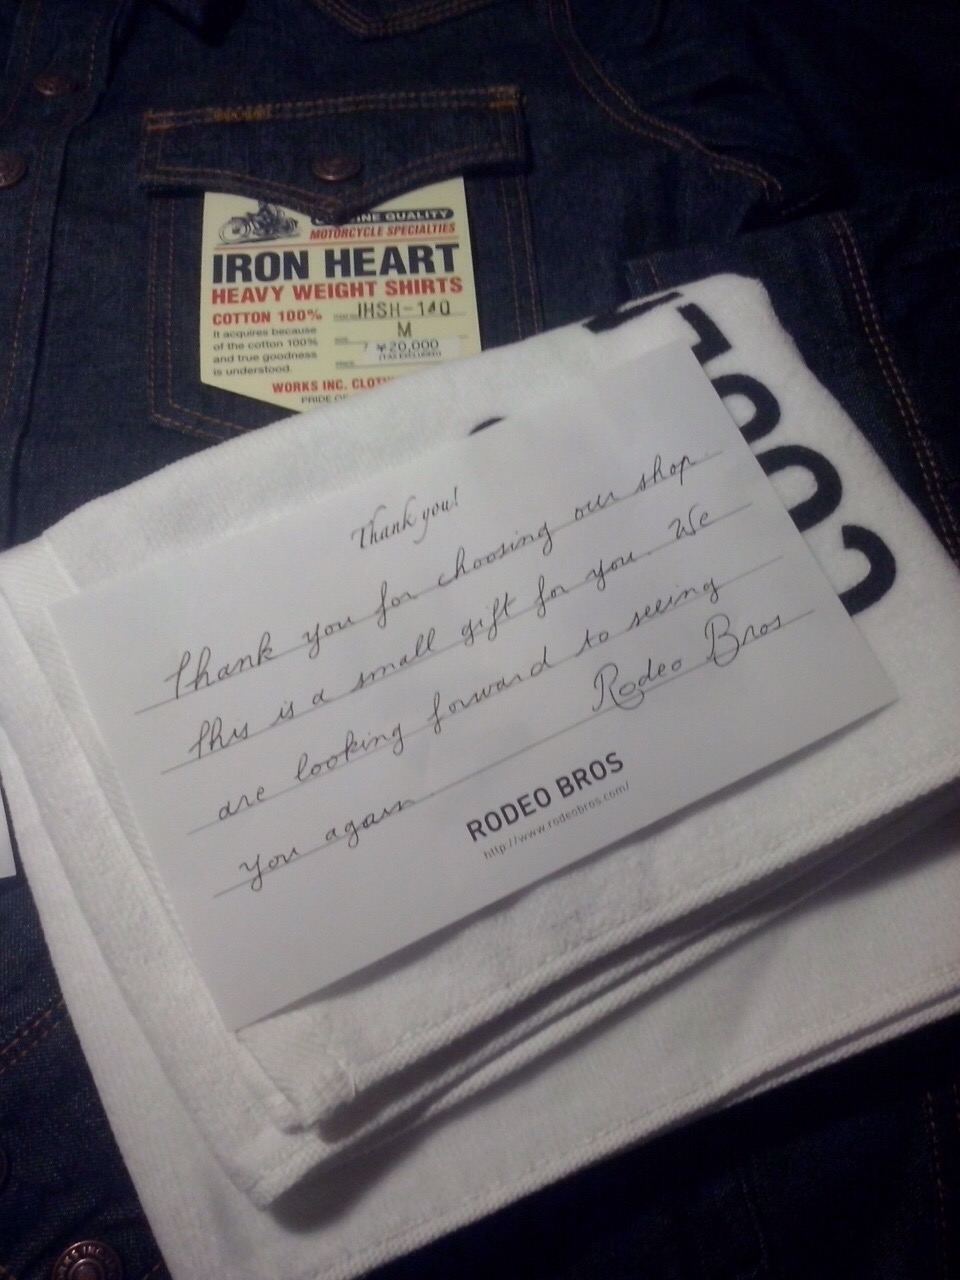 GENUINE QUALITY
MOTORCYCLE SPECIALTIES
IRON HEART
HEAVY WEIGHT SHIRTS
COTTON 100%
IHSH-140
It acquires because
of the cotton 100%
and true goodness
is understood.
M
¥20,000
(TAX EXCLUDED)
PRICE
WORKS INC. CLOTH
PRIDE OF
Thank you!
Thank you for choosing our shop.
This is a small gift for you. We
are looking forward to seeing
you again. Rodeo Bros
RODEO BROS
http://www.rodeobros.com/